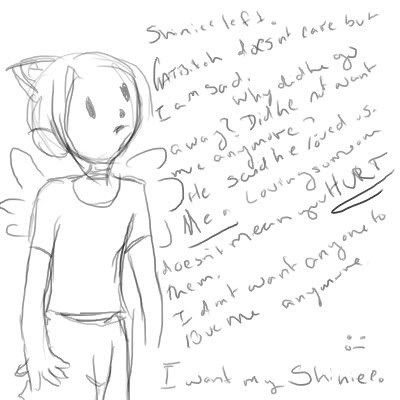 Shiniez left.
doesnt care but
I am sad. Why did he go
away? Did he not want
me anymore?
He said he loved us.
Me. Loving someone
doesn't mean you HURT
them.
I dont want anyone to
love me anymore.
I want my Shiniez.